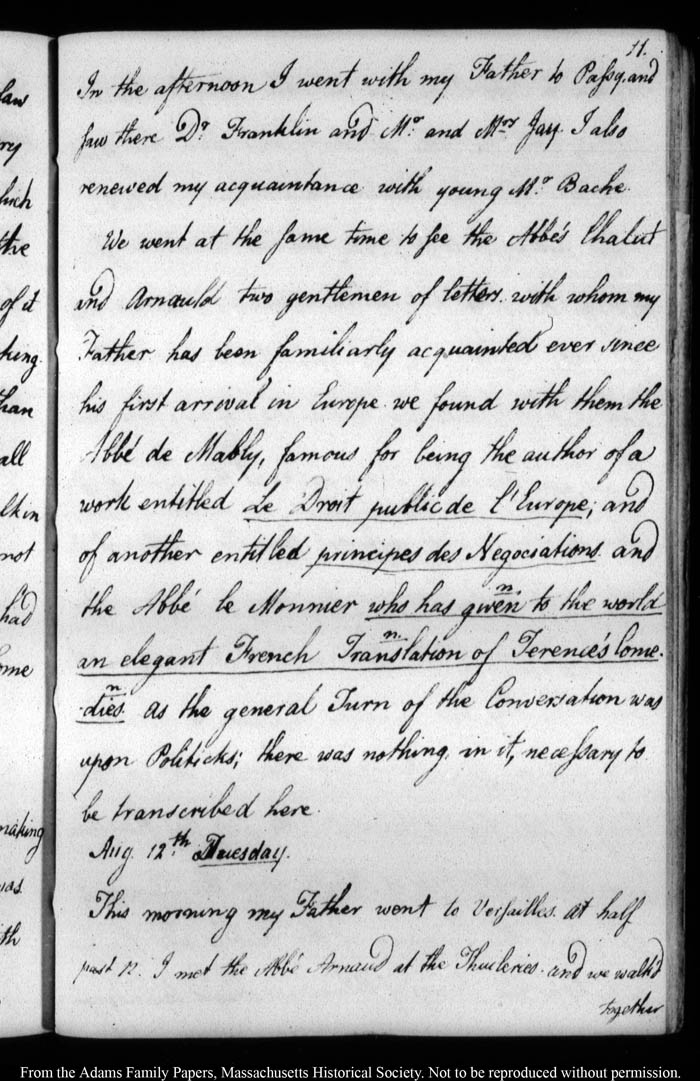 11.
In the afternoon I went with my Father to Passy, and
saw there Dr. Franklin and Mr. and Mrs. Jay. I also
renewed my acquaintance with young Mr. Bache.
We went at the same time to see the Abbé's Chalut
and Arnauld two gentlemen of letters. with whom my
Father has been familiarly acquainted ever since
his first arrival in Europe. we found with them the
Abbé de Mably, famous for being the author of a
work entitled Le Droit public de l'Europe; and
of another entitled principes des Negociations. and
the Abbé le Monnier who has given to the world
an elegant French Translation of Terence's Come-
-dies. as the general Turn of the Conversation was
upon Politicks; there was nothing in it, necessary to
be transcribed here.
Aug. 12th. Tuesday.
This morning my Father went to Versailles. at half
past 12. I met the Abbé Arnaud at the Thuileries. and we walk'd
together
law
ry
hich
the
of it
hing
than
all
lk in
not
had
ome
making
was
ith
From the Adams Family Papers, Massachusetts Historical Society. Not to be reproduced without permission.